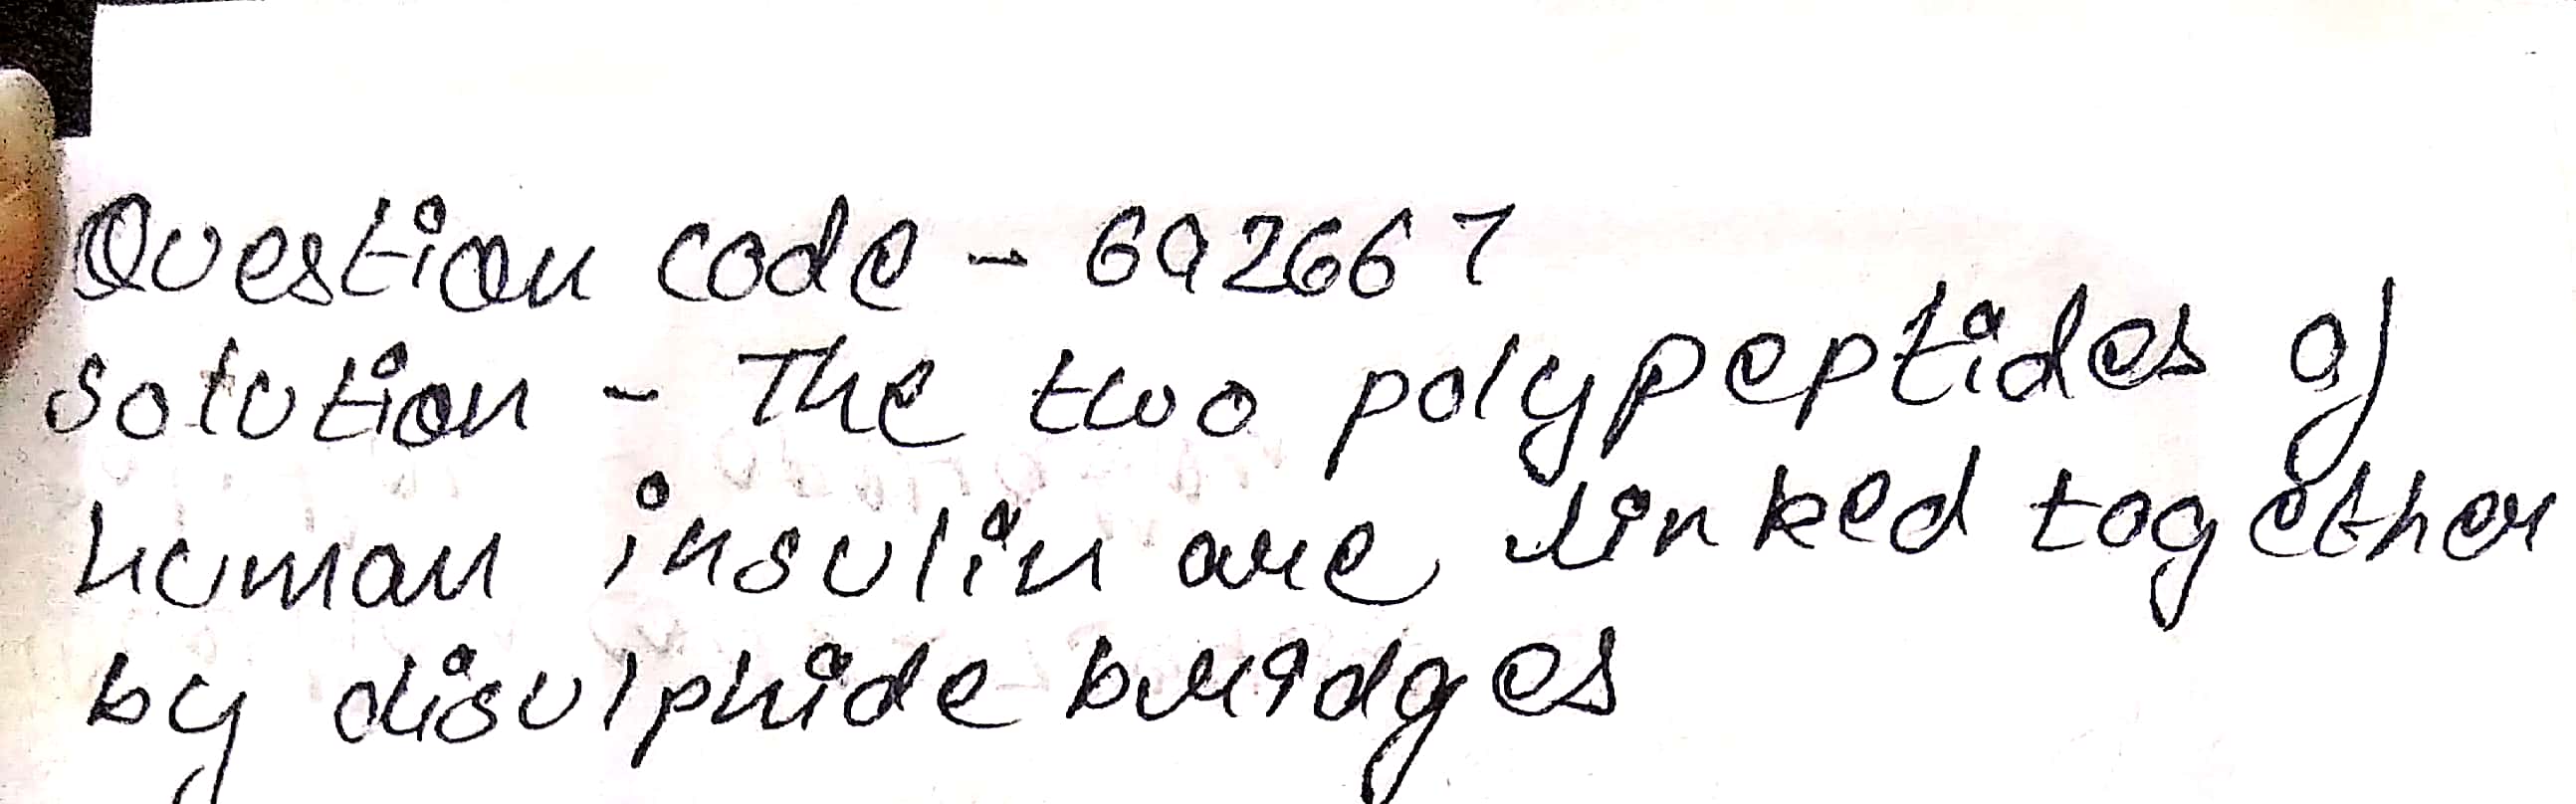 Question code - 692667
solution - The two polypeptides of
human insulin are linked together
by disulphide bridges